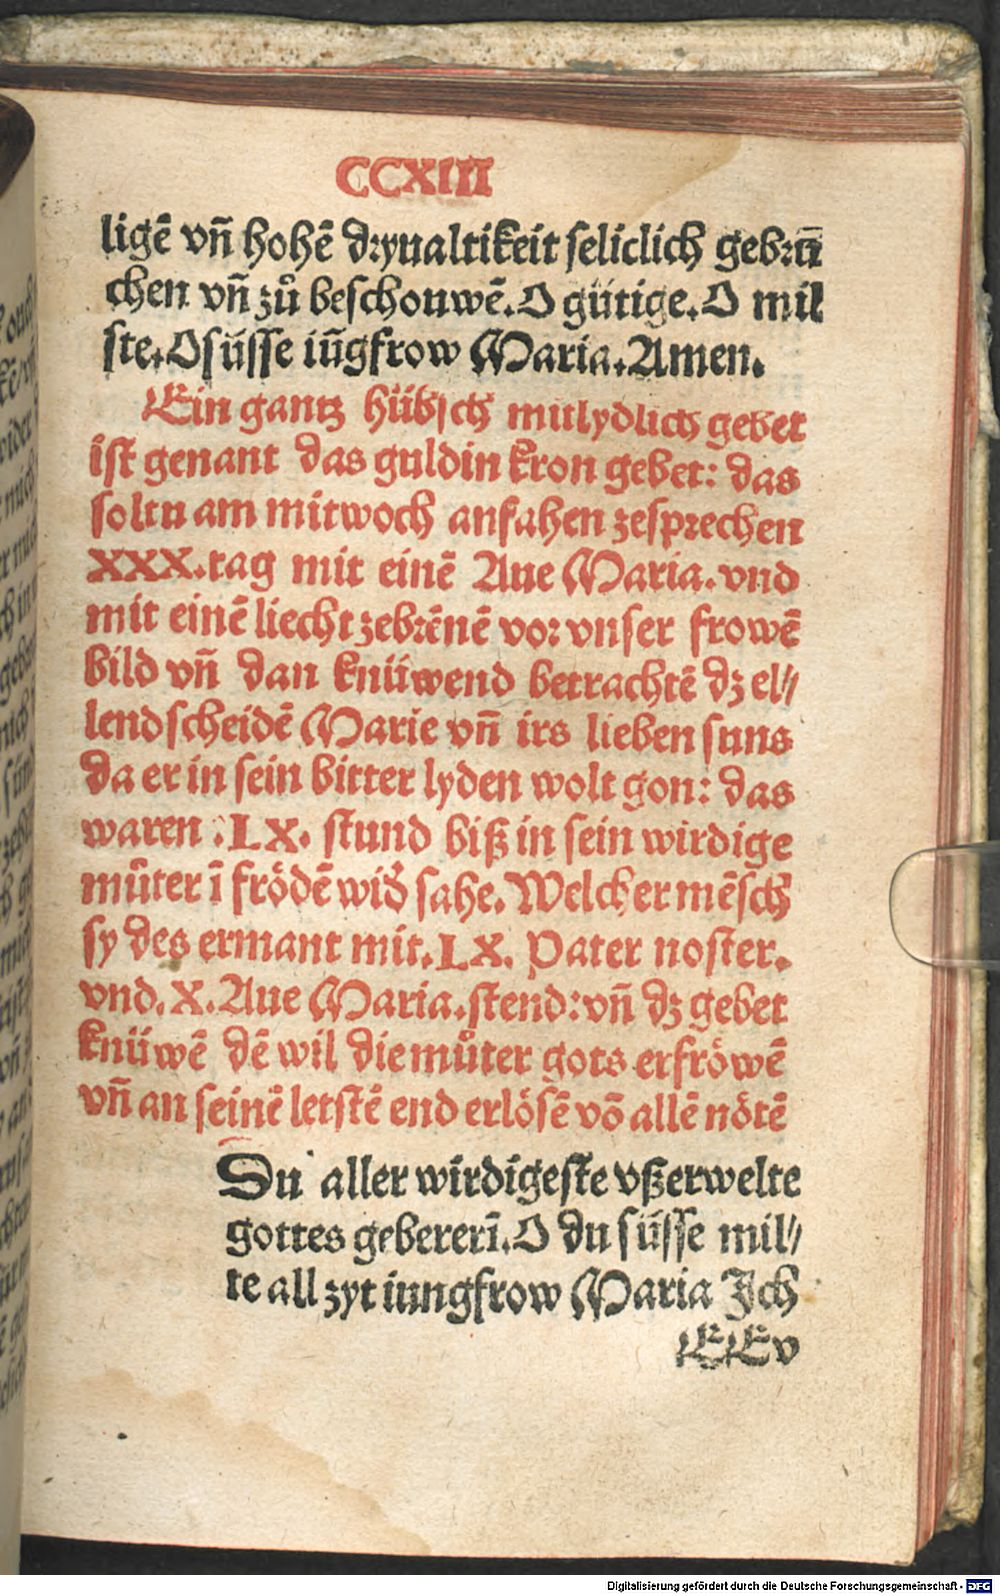 CCXIII
ligē vñ hohē dryualtikeit seliclich gebrū
chen vñ zů beschouwē. O gütige. O mil
ste. O süsse iūgfrow Maria. Amen.
Ein gantz hübsch mitlydlich gebet
ist genant das guldin kron gebet: das
soltu am mitwoch anfahen zesprechen
XXX. tag mit einē Aue Maria. vnd
mit einē liecht zebrēnē vor vnser frowē
bild vñ dan knüwend betrachtē dz el⸗
lend scheidē Marie vñ irs lieben suns
da er in sein bitter lyden wolt gon: das
waren .LX. stund biß in sein wirdige
můter ī frödē wid̕ sahe. Welcher mēsch
sy des ermant mit. LX. Pater noster.
vnd. X. Aue Maria. stend: vñ dz gebet
knüwē dē wil die můter gots erfröwē
vñ an seinē letstē end erlösē vō allē nötē
Du aller wirdigeste vßerwelte
gottes gebererī. O du süsse mil⸗
te all zyt iungfrow Maria Ich
EE v
Digitalisierung gefördert durch die Deutsche Forschungsgemeinschaft - DFG